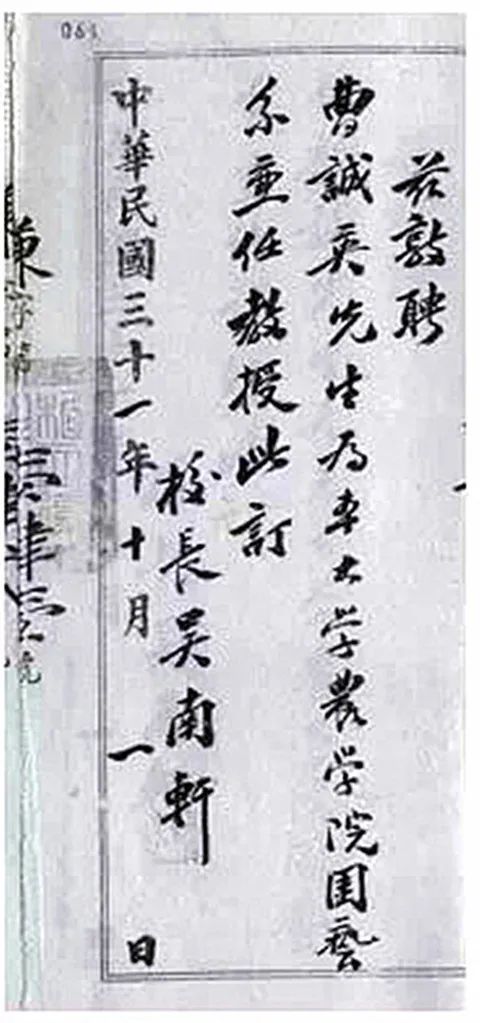 兹敦聘
曹誠英先生为本大学農学院園藝
系兼任教授此訂
校長吴南軒
中華民國三十一年十月一日
061